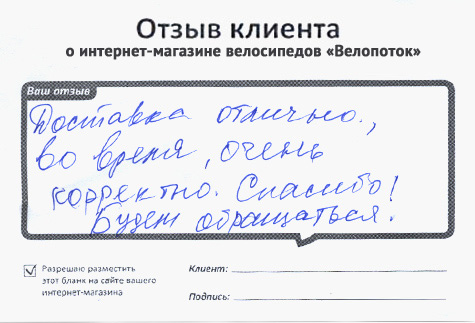 Отзыв клиента
о интернет-магазине велосипедов «Велопоток»
Ваш отзыв
Доставка отлично.,
во время, очень
корректно. Спасибо!
Будем обращаться.
Разрешаю разместить
этот бланк на сайте вашего
интернет-магазина
Клиент:
Подпись: